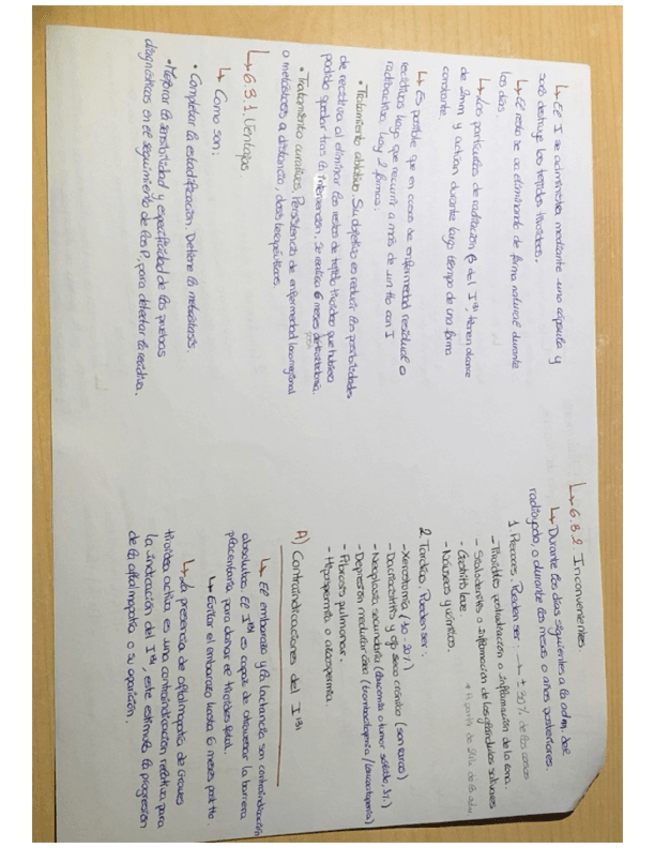 ↳ El I se administra mediante una cápsula y
solo destruye los tejidos tiroideos.
↳ El resto se va eliminando de forma natural durante
los días.
↳ Las partículas de radiación β del I¹³¹, tienen alcance
de 2mm y actúan durante largo tiempo de una forma
constante.
↳ Es posible que en casos de enfermedad residual o
recidivas haya que recurrir a más de un tto con I
radiactivo, hay 2 formas:
• Tratamiento ablativo. Su objetivo es reducir las posibilidades
de recidiva al eliminar los restos de tejido tiroideo que hubiera
podido quedar tras la intervención, se realiza 6 meses
• Tratamiento curativo. Persistencia de enfermedad locorregional
o metástasis a distancia, dosis terapéuticas.
↳ 6.3.1. Ventajas.
↳ Como son:
• Completar la estadificación. Detiene la metástasis.
• Mejorar la sensibilidad y especificidad de las pruebas
diagnósticas en el seguimiento de los P, para detectar la recidiva.
↳ 6.3.2 Inconvenientes.
↳ Durante los días siguientes a la adm. del
radioyodo, o durante los meses o años posteriores.
1. Precoces. Pueden ser: → ± 30% de los casos
- Tiroiditis postradiación o inflamación de la zona.
- Sialoadenitis o inflamación de las glándulas salivares
- Gastritis leve
- Náuseas y vómitos.
2. Tardíos. Pueden ser:
- Xerostomía (10-20%)
- Dacriocistitis y ojo seco crónico (son raros)
- Neoplasia secundaria (leucemia o tumor sólido,
- Depresión medular ósea (trombocitopenia/leucocitopenia)
- Fibrosis pulmonar.
- Hipospermia o azoospermia.
A) Contraindicaciones del I¹³¹
↳ El embarazo y la lactancia son contraindicación
absoluta. El I¹³¹ es capaz de atravesar la barrera
placentaria para dañar el tiroides fetal.
↳ Evitar el embarazo hasta 6 meses post tto.
↳ La presencia de oftalmopatía de Graves
tiroidea activa es una contraindicación relativa para
la indicación del I¹³¹, este estimula la progresión
de la oftalmopatía o su aparición.